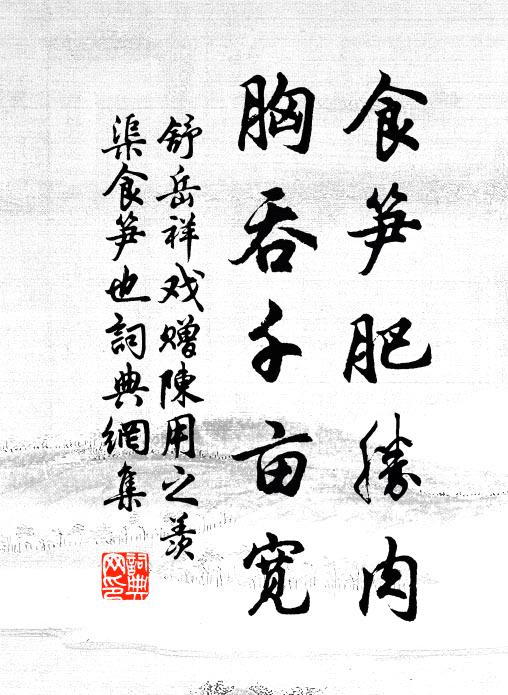 食笋肥勝肉
胸吞千亩宽
舒岳祥戏赠陳用之羡
渠食笋也詞典網集
詞典
网印